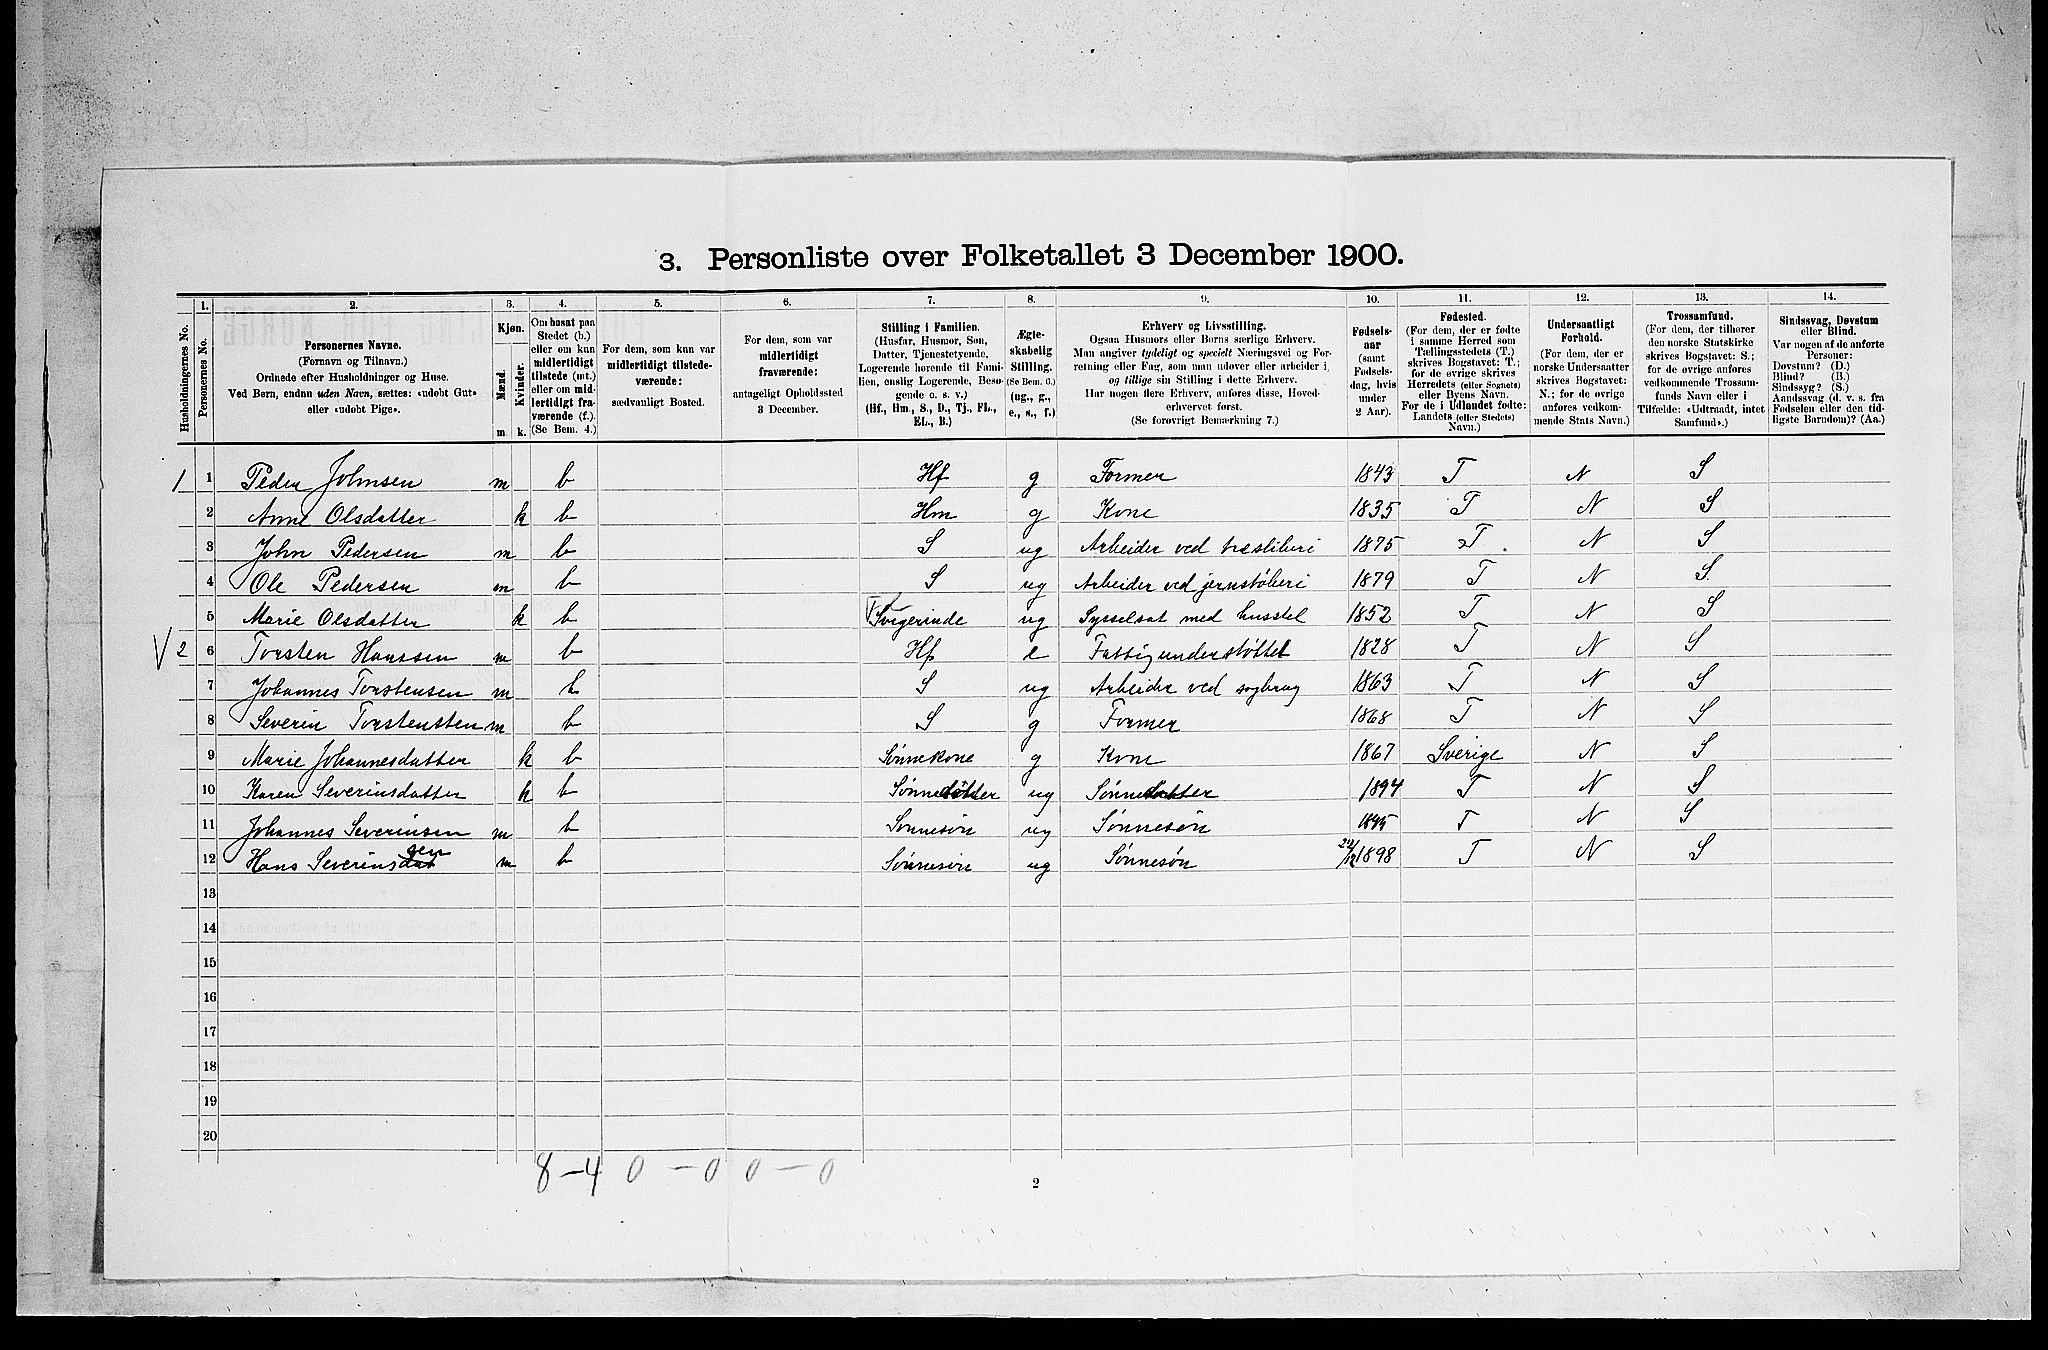 3. Personliste over Folketallet 3 December 1900.
1. 2. 3. 4. 5. 6. 7. 8. 9. 10. 11. 12. 13. 14.
Husholdningernes No.
Personernes No.
Personernes Navne.
(Fornavn og Tilnavn.)
Ordnede efter Husholdninger og Huse.
Ved Børn, endnu uden Navn, sættes: «udøbt Gut»
eller «udøbt Pige».
Kjøn.
Mænd.
Kvinder.
m k.
Om bosat paa
Stedet (b.)
eller om kun
midlertidigt
tilstede (mt.)
eller om mid-
lertidigt fra-
værende (f.).
(Se Bem. 4.)
For dem, som kun var
midlertidigt tilstede-
værende:
sædvanligt Bosted.
For dem, som var
midlertidigt
fraværende:
antageligt Opholdssted
3 December.
Stilling i Familien.
(Husfar, Husmor, Søn,
Datter, Tjenestetyende,
Logerende hørende til Fami-
lien, enslig Logerende, Besø-
gende o. s. v.)
(Hf., Hm., S., D., Tj., FL.,
EL., B.)
Ægte-
skabelig
Stilling.
(Se Bem. 6.)
(ug., g.,
e., s., f.)
Erhverv og Livsstilling.
Ogsaa Husmors eller Børns særlige Erhverv.
Man angiver tydeligt og specielt Næringsvei og For-
retning eller Fag, som man udøver eller arbeider i,
og tillige sin Stilling i dette Erhverv.
Har nogen flere Erhverv, anføres disse, Hoved-
erhvervet først.
(Se forøvrigt Bemærkning 7.)
Fødsels-
aar
(samt
Fødsels-
dag, hvis
under
2 Aar).
Fødested.
(For dem, der er fødte
i samme Herred som
Tællingsstedets (T.)
skrives Bogstavet: T.;
for de øvrige skrives
Herredets (eller Sognets)
eller Byens Navn.
For de i Udlandet fødte:
Landets (eller Stedets)
Navn.)
Undersaatligt
Forhold.
(For dem, der er
norske Undersaatter
skrives Bogstavet:
N.; for de øvrige
anføres vedkom-
mende Stats Navn.)
Trossamfund.
(For dem, der tilhører
den norske Statskirke
skrives Bogstavet: S.;
for de øvrige anføres
vedkommende Trossam-
funds Navn eller i
Tilfælde: «Udtraadt, intet
Samfund».)
Sindssvag, Døvstum
eller Blind.
Var nogen af de anførte
Personer:
Døvstum? (D.)
Blind? (B.)
Sindssyg? (S.)
Aandssvag (d. v. s. fra
Fødselen eller den tid-
ligste Barndom)? (Aa.)
1 1 Peder Johnsen m b Hf g Former 1843 T N S
2 Anne Olsdatter k b Hm g Kone 1835 T N S
3 John Pedersen m b S ug Arbeider ved træsliberi 1875 T. N S
4 Ole Pedersen m b S ug Arbeider ved jernstøberi 1879 T N S.
5 Marie Olsdatter k b Svigerinde ug Sysselsat med husstel 1852 T N S
V 2 6 Torsten Hanssen m b Hf e Fattigunderstøttet 1828 T N S
7 Johannes Torstensen m b S ug Arbeider ved sagbrug 1863 T N S
8 Severin Torstensten m b S g Former 1868 T N S
9 Marie Johannesdatter k b Sønnekone g Kone 1867 Sverige N S
10 Karen Severinsdatter k b Sønnedatter ug Sønnedatter 1894 T N S
11 Johannes Severinsen m b Sønnesøn ug Sønnesøn 1895 T N S
12 Hans Severinsdat sen m b Sønnesøn ug Sønnesøn 1898 T N S
13
14
15
16
17
18
19
20
8 – 4 0 – 0 0 – 0
2